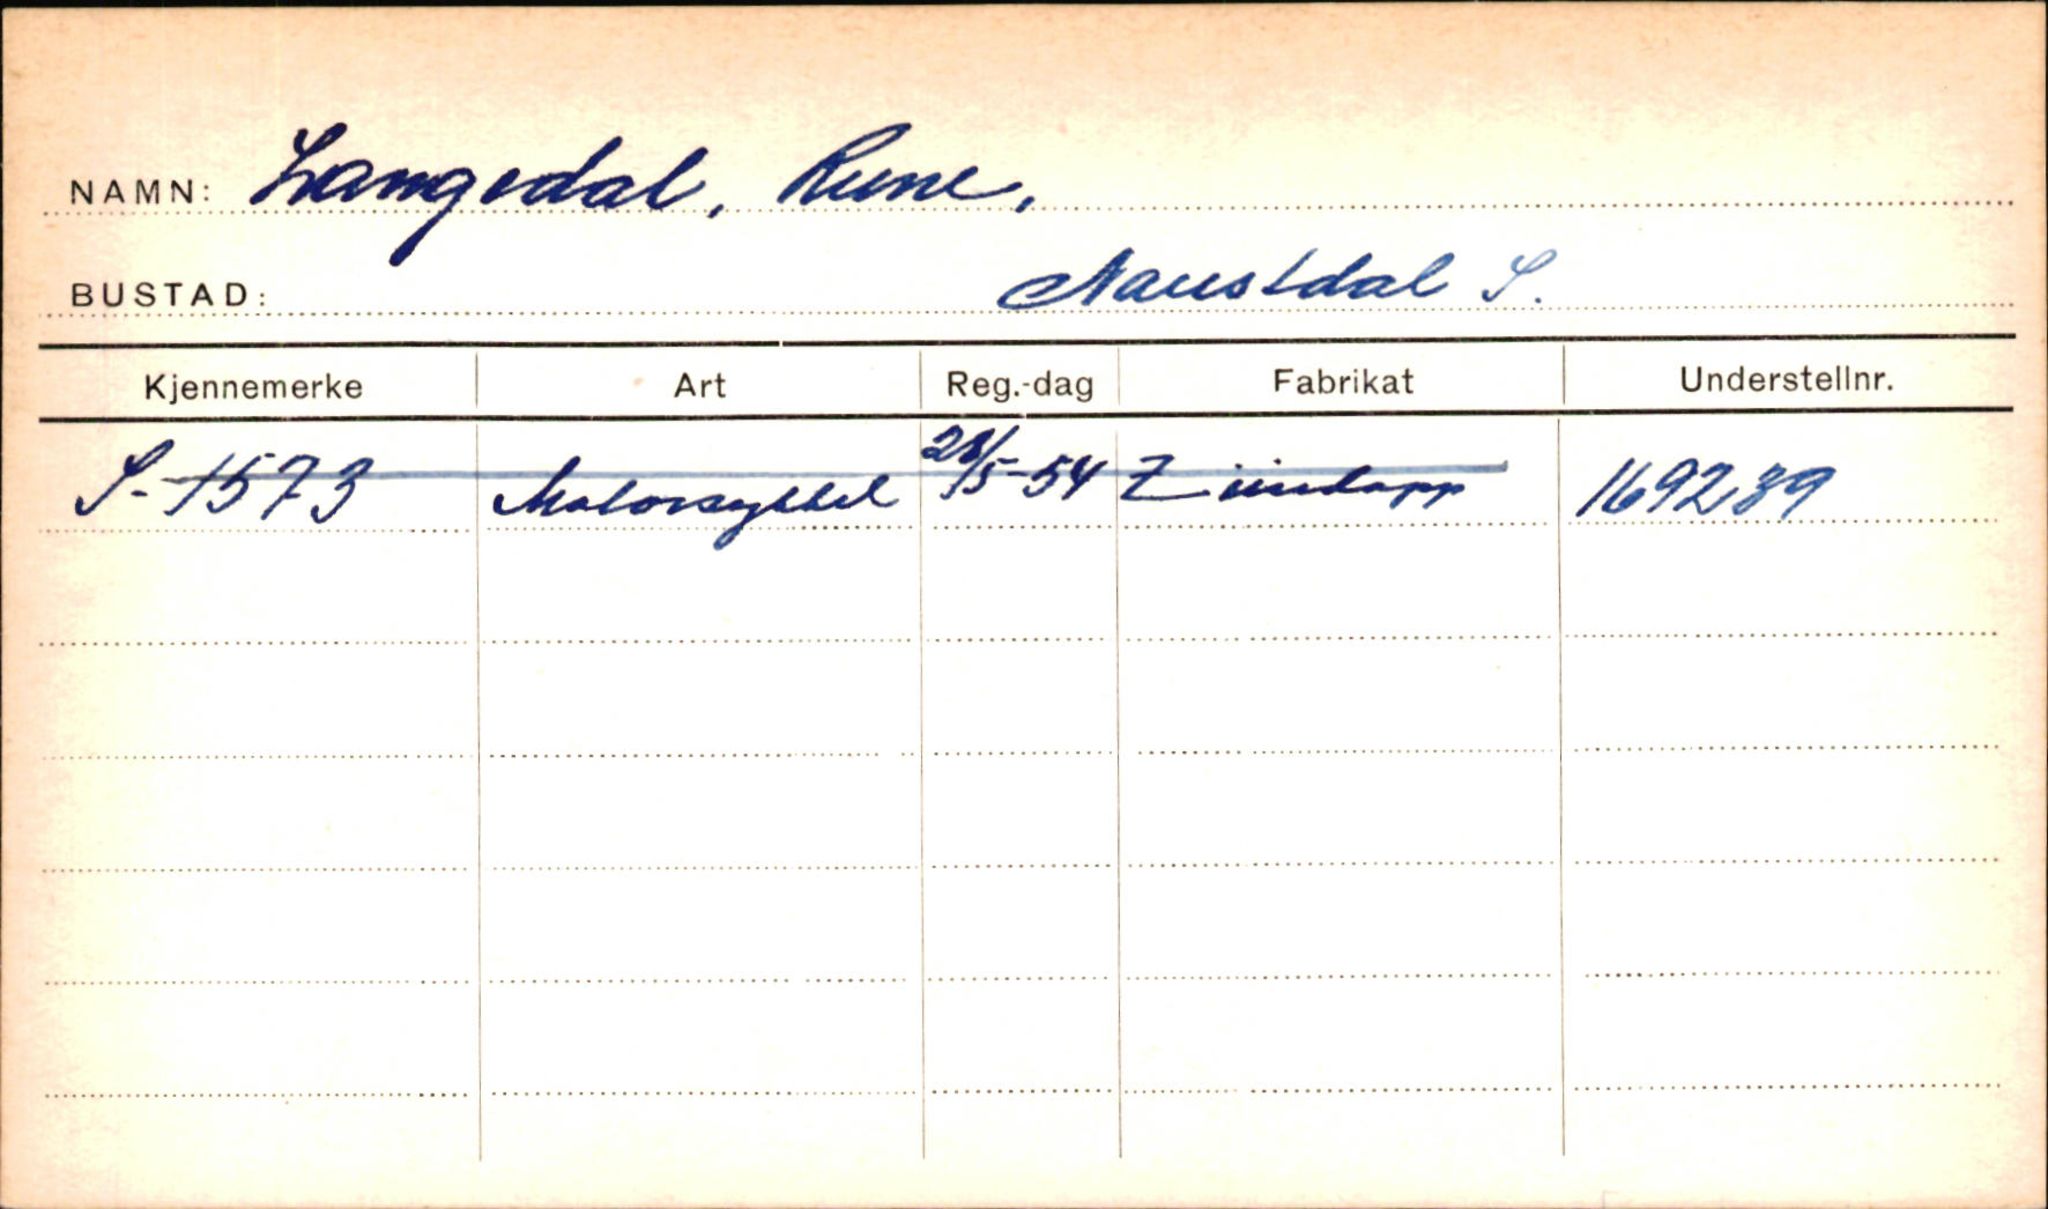 NAMN: Langedal, Rune.
BUSTAD: Naustdal S.
Kjennemerke Art Reg.-dag Fabrikat Understellnr.
S-1573 Motorsykkel 28/5-54 Zündapp 169239